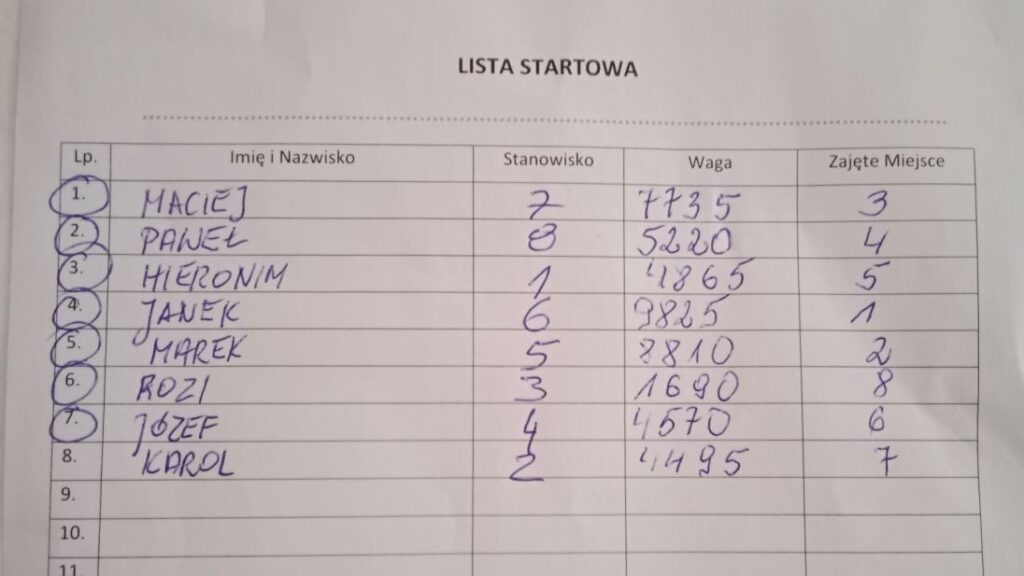 LISTA STARTOWA
Lp. Imię i Nazwisko Stanowisko Waga Zajęte Miejsce
1. MACIEJ 7 7735 3
2. PAWEŁ 8 5220 4
3. HIERONIM 1 4865 5
4. JANEK 6 9825 1
5. MAREK 5 8810 2
6. ROZI 3 1690 8
7. JÓZEF 4 4570 6
8. KAROL 2 4495 7
9.
10.
11.